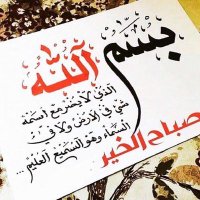 بسم الله
الذي لا يضر مع اسمه
شيء في الأرض ولا في
السماء وهو السميع العليم ...
صباح الخير